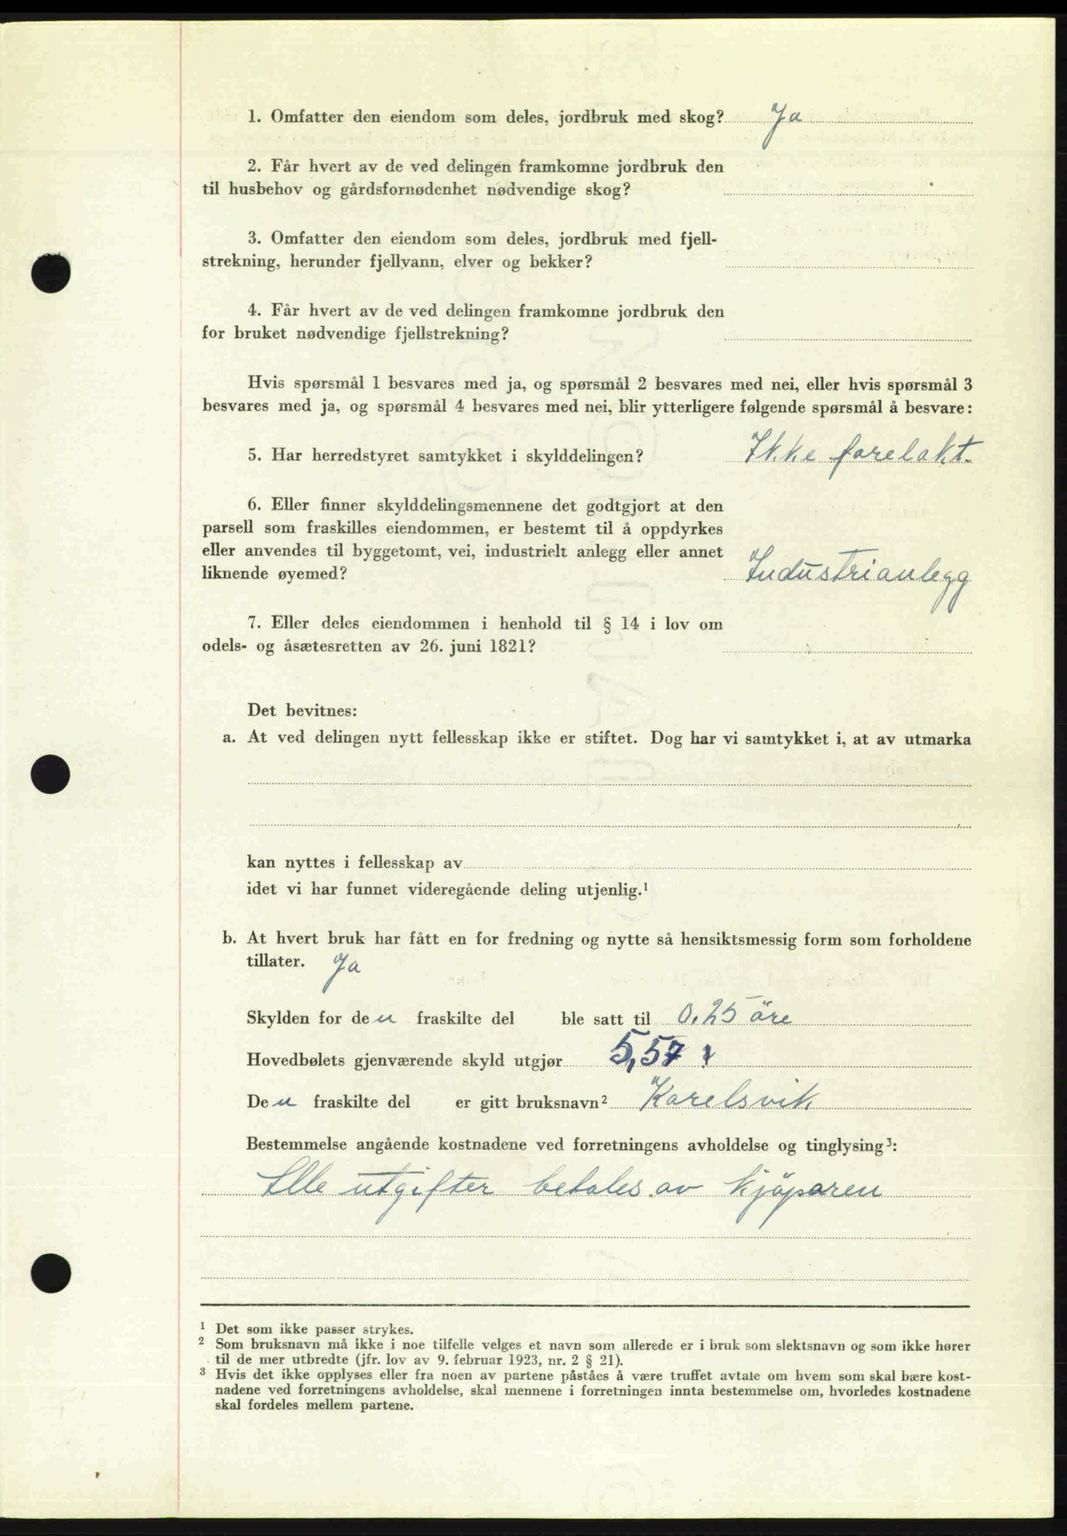 1. Omfatter den eiendom som deles, jordbruk med skog? Ja
2. Får hvert av de ved delingen framkomne jordbruk den
til husbehov og gårdsfornødenhet nødvendige skog?
3. Omfatter den eiendom som deles, jordbruk med fjell-
strekning, herunder fjellvann, elver og bekker?
4. Får hvert av de ved delingen framkomne jordbruk den
for bruket nødvendige fjellstrekning?
Hvis spørsmål 1 besvares med ja, og spørsmål 2 besvares med nei, eller hvis spørsmål 3
besvares med ja, og spørsmål 4 besvares med nei, blir ytterligere følgende spørsmål å besvare:
5. Har herredstyret samtykket i skylddelingen? Ikke forelakt.
6. Eller finner skylddelingsmennene det godtgjort at den
parsell som fraskilles eiendommen, er bestemt til å oppdyrkes
eller anvendes til byggetomt, vei, industrielt anlegg eller annet
liknende øyemed? Industrianlegg
7. Eller deles eiendommen i henhold til § 14 i lov om
odels- og åsætesretten av 26. juni 1821?
Det bevitnes:
a. At ved delingen nytt fellesskap ikke er stiftet. Dog har vi samtykket i, at av utmarka
kan nyttes i fellesskap av
idet vi har funnet videregående deling utjenlig.¹
b. At hvert bruk har fått en for fredning og nytte så hensiktsmessig form som forholdene
tillater. Ja
Skylden for den fraskilte del ble satt til 0.25 öre
Hovedbølets gjenværende skyld utgjør 5,57
Den fraskilte del er gitt bruksnavn² Karelsvik
Bestemmelse angående kostnadene ved forretningens avholdelse og tinglysing³:
Alle utgifter betales av kjöparen
¹ Det som ikke passer strykes.
² Som bruksnavn må ikke i noe tilfelle velges et navn som allerede er i bruk som slektsnavn og som ikke hører
til de mer utbredte (jfr. lov av 9. februar 1923, nr. 2 § 21).
³ Hvis det ikke opplyses eller fra noen av partene påståes å være truffet avtale om hvem som skal bære kost-
nadene ved forretningens avholdelse, skal mennene i forretningen innta bestemmelse om, hvorledes kostnadene
skal fordeles mellem partene.